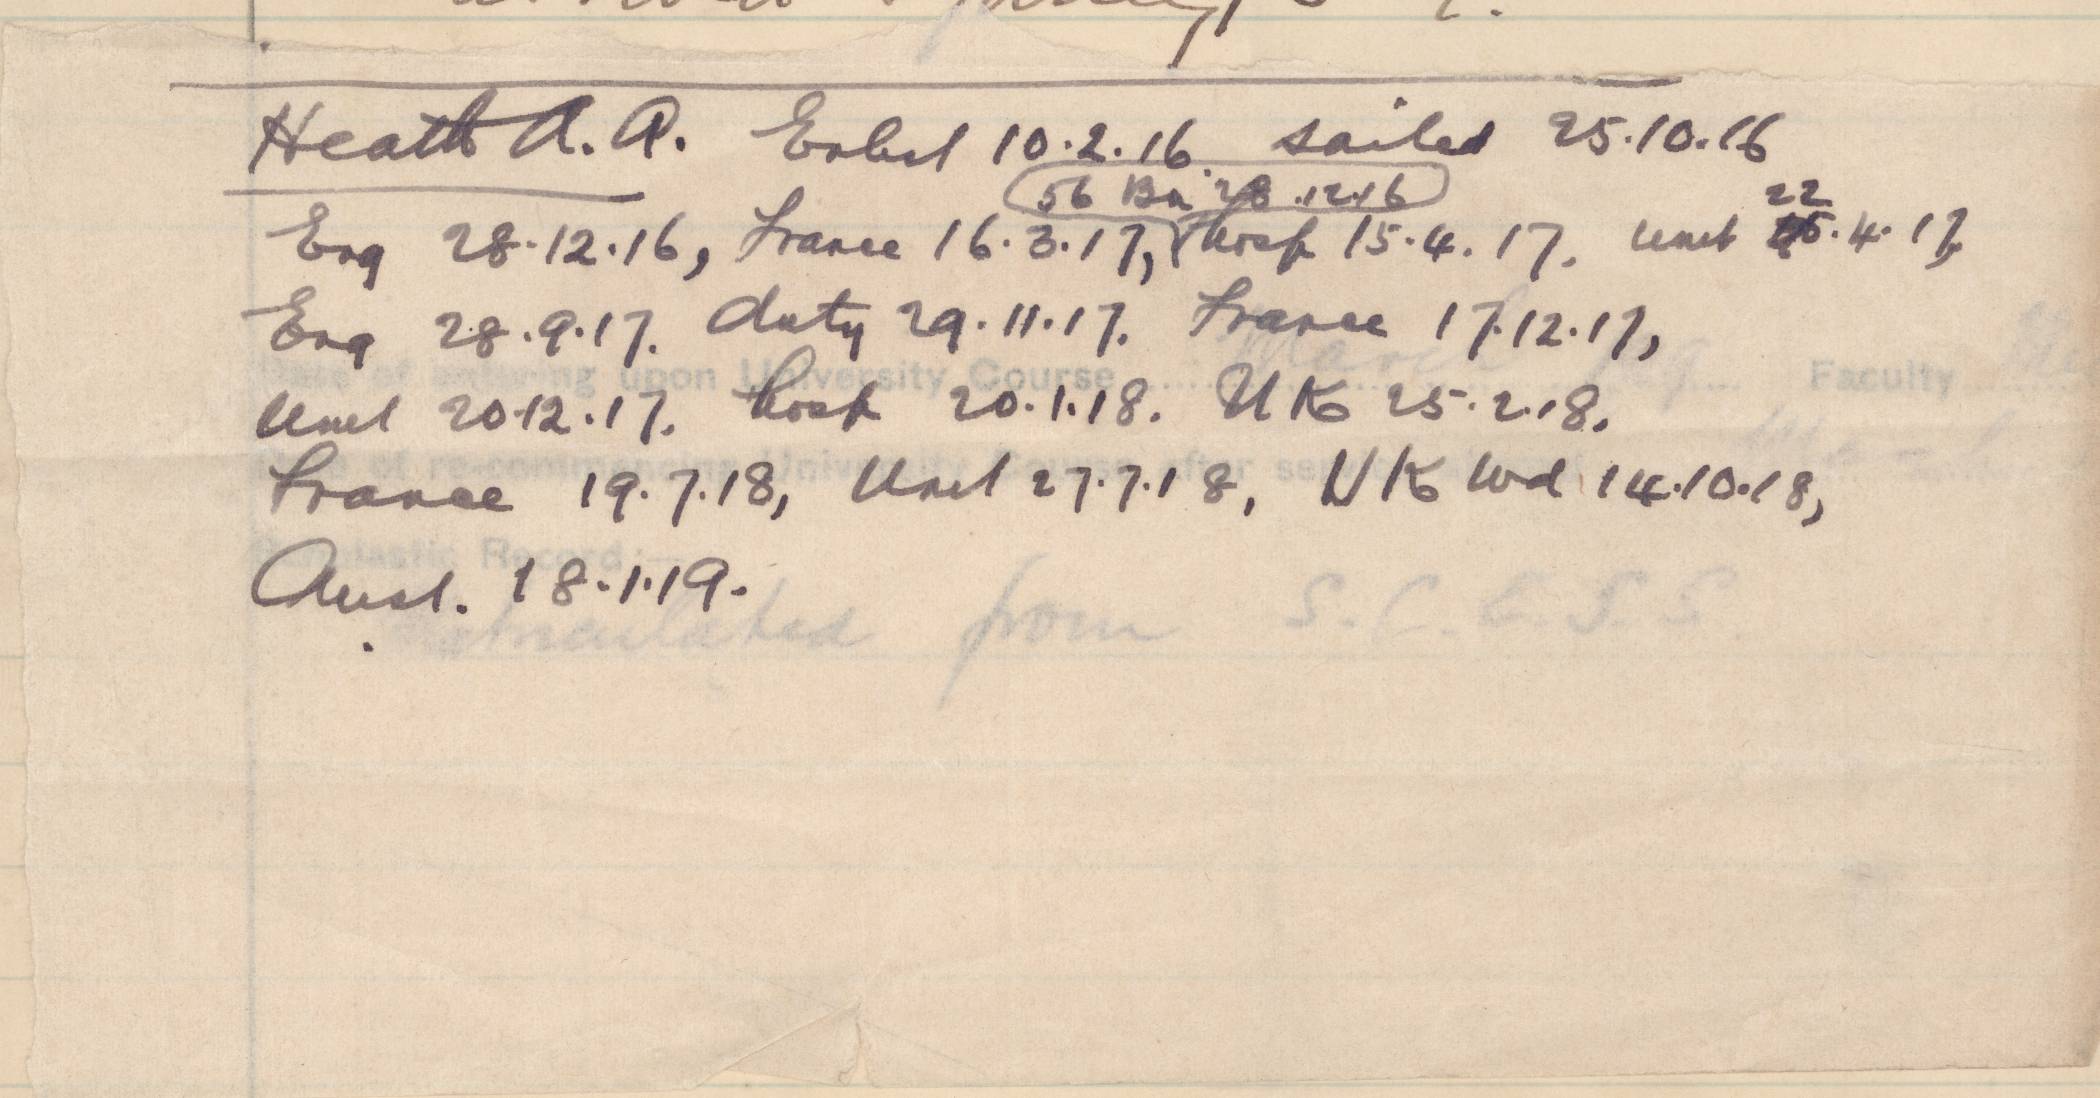 Heath A. A. Enlist 10.2.16 sailed 25.10.16
56 Bn 28.12.16
22
Eng 28.12.16, France 16.3.17, Hosp 15.4.17. Unit .4.17,
Eng 28.9.17. duty 29.11.17. France 17.12.17,
Date of entering upon University Course March Faculty
Unit 20.12.17. Hosp 20.1.18. UK 25.2.18.
Date of re-commencing University Course after
France 19.7.18, Unit 27.7.18, UK Wd 14.10.18,
Scholastic Record:—
Aust. 18.1.19.
Matriculated from S.C.E.G.S.